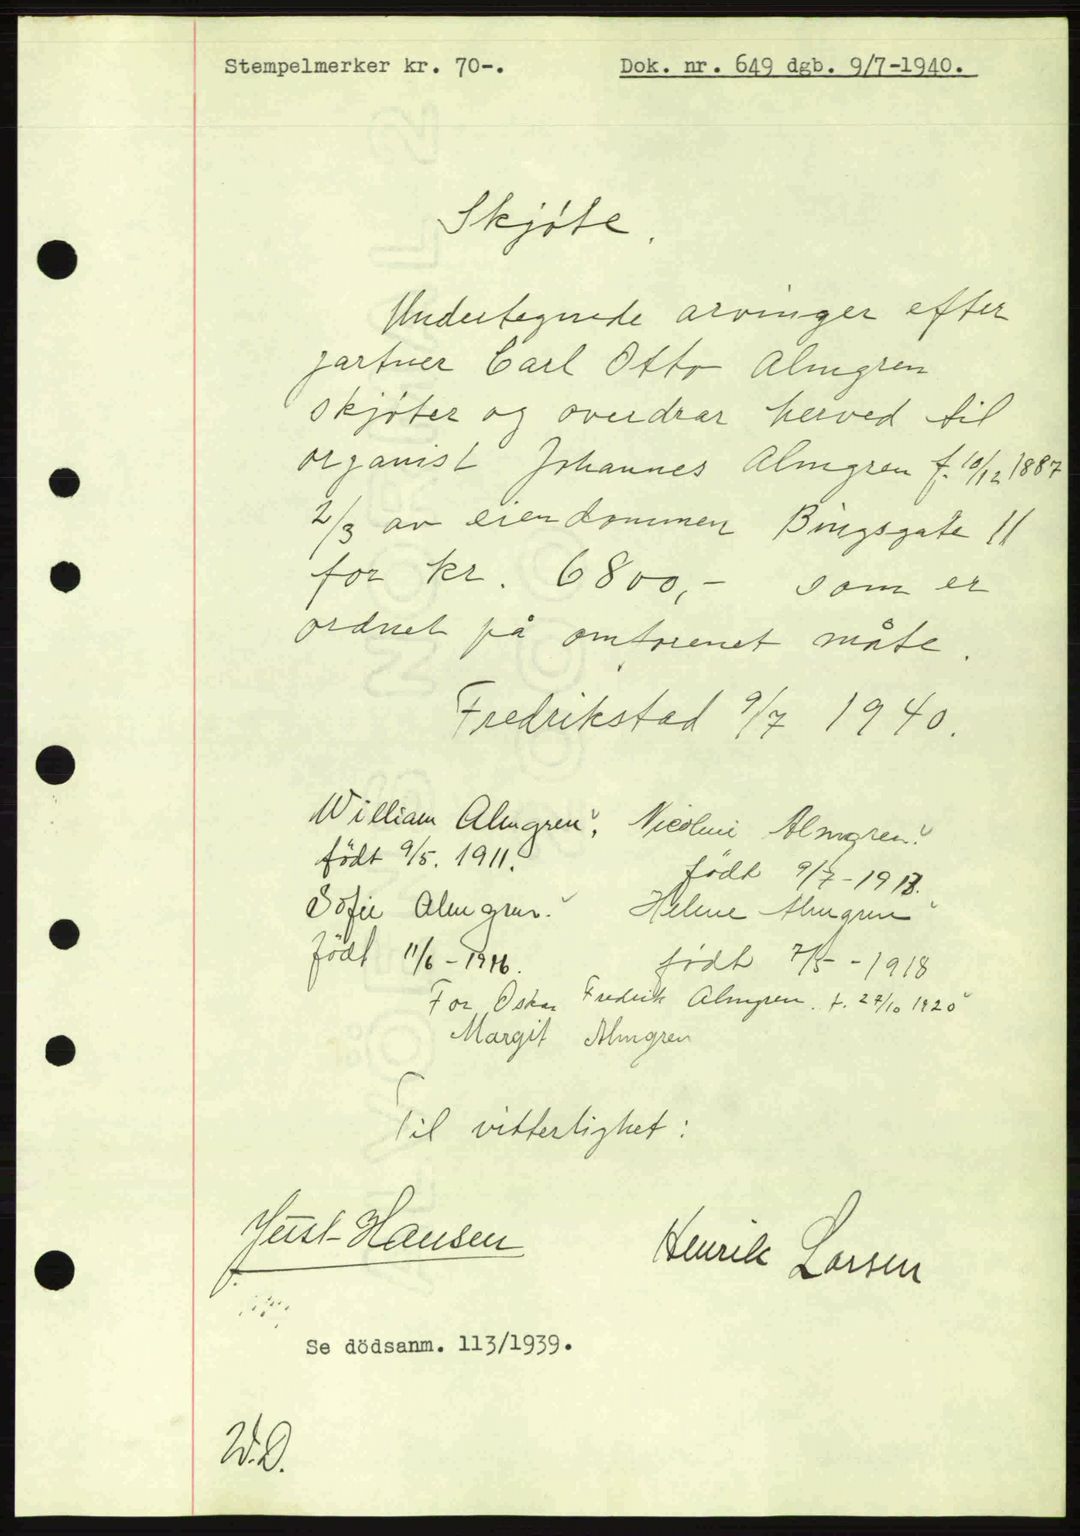 Stempelmerker kr. 70-.
Dok. nr. 649 dgb. 9/7-1940.
Skjøte.
Undertegnede arvinger efter
gartner Carl Otto Almgren
skjøter og overdrar herved til
organist Johannes Almgren f. 10/12 1887
2/3 av eiendommen Bingsgate 11
for kr. 6800,- som er
ordnet på omforenet måte.
Fredrikstad 9/7 1940.
William Almgren. Nicolini Almgren.
født 9/5. 1911. født 9/7-1913.
Sofie Almgren. Helene Almgren
født 11/6-1916. født 7/5-1918
For Oskar Fredrik Almgren. f. 27/10 1920
Margit Almgren
Til vitterlighet:
Just Hansen
Henrik Larsen
Se dödsanm. 113/1939.
W.D.